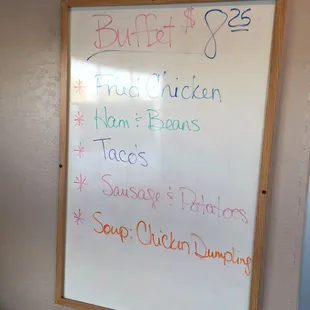 Buffet $8.25
* Fried Chicken
* Ham & Beans
* Taco's
* Sausage & Potatoes
* Soup: Chicken Dumpling